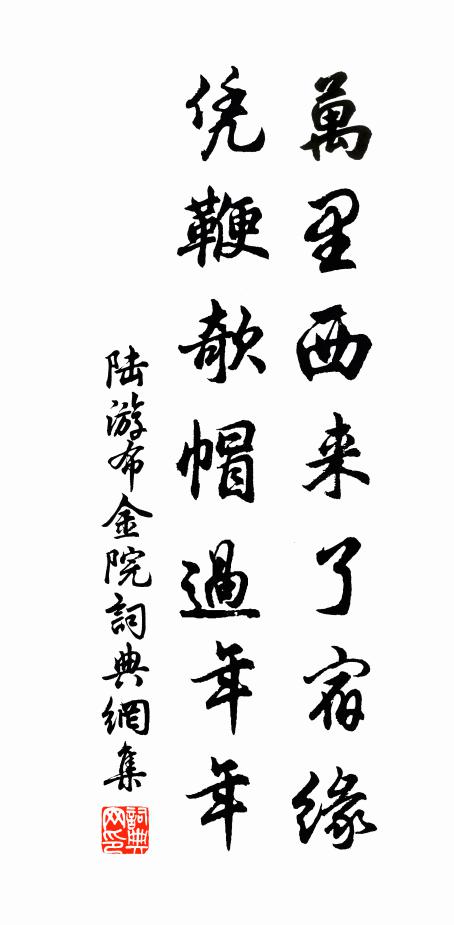 萬里西来了宿緣
凭鞭欹帽過年年
陆游布金院詞典網集
詞典网印